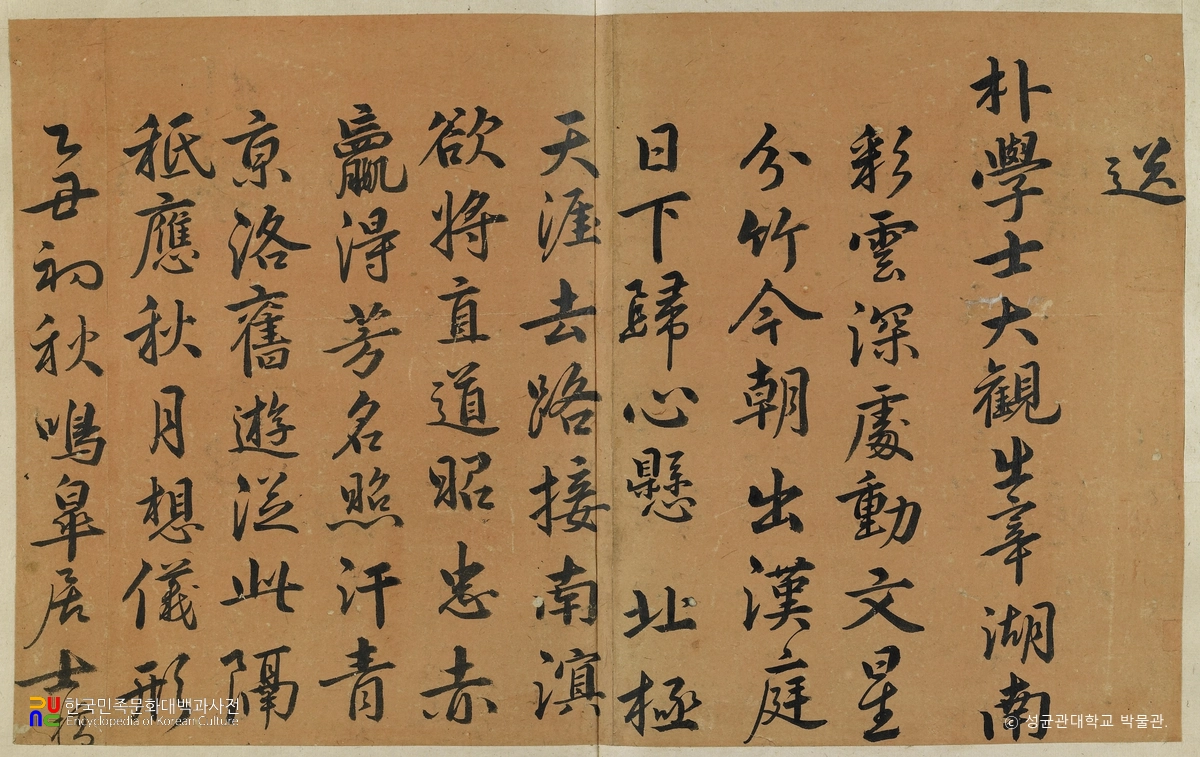 送
朴學士大觀出宰湖南
彩雲深處動文星
分竹今朝出漢庭
日下歸心懸北極
天涯去路接南溟
欲將直道昭忠赤
贏得芳名照汗青
京洛舊遊從此隔
秪應秋月想儀形
乙丑初秋鳴皐居士稿
한국민족문화대백과사전
Encyclopedia of Korean Culture
ⓒ 성균관대학교 박물관.